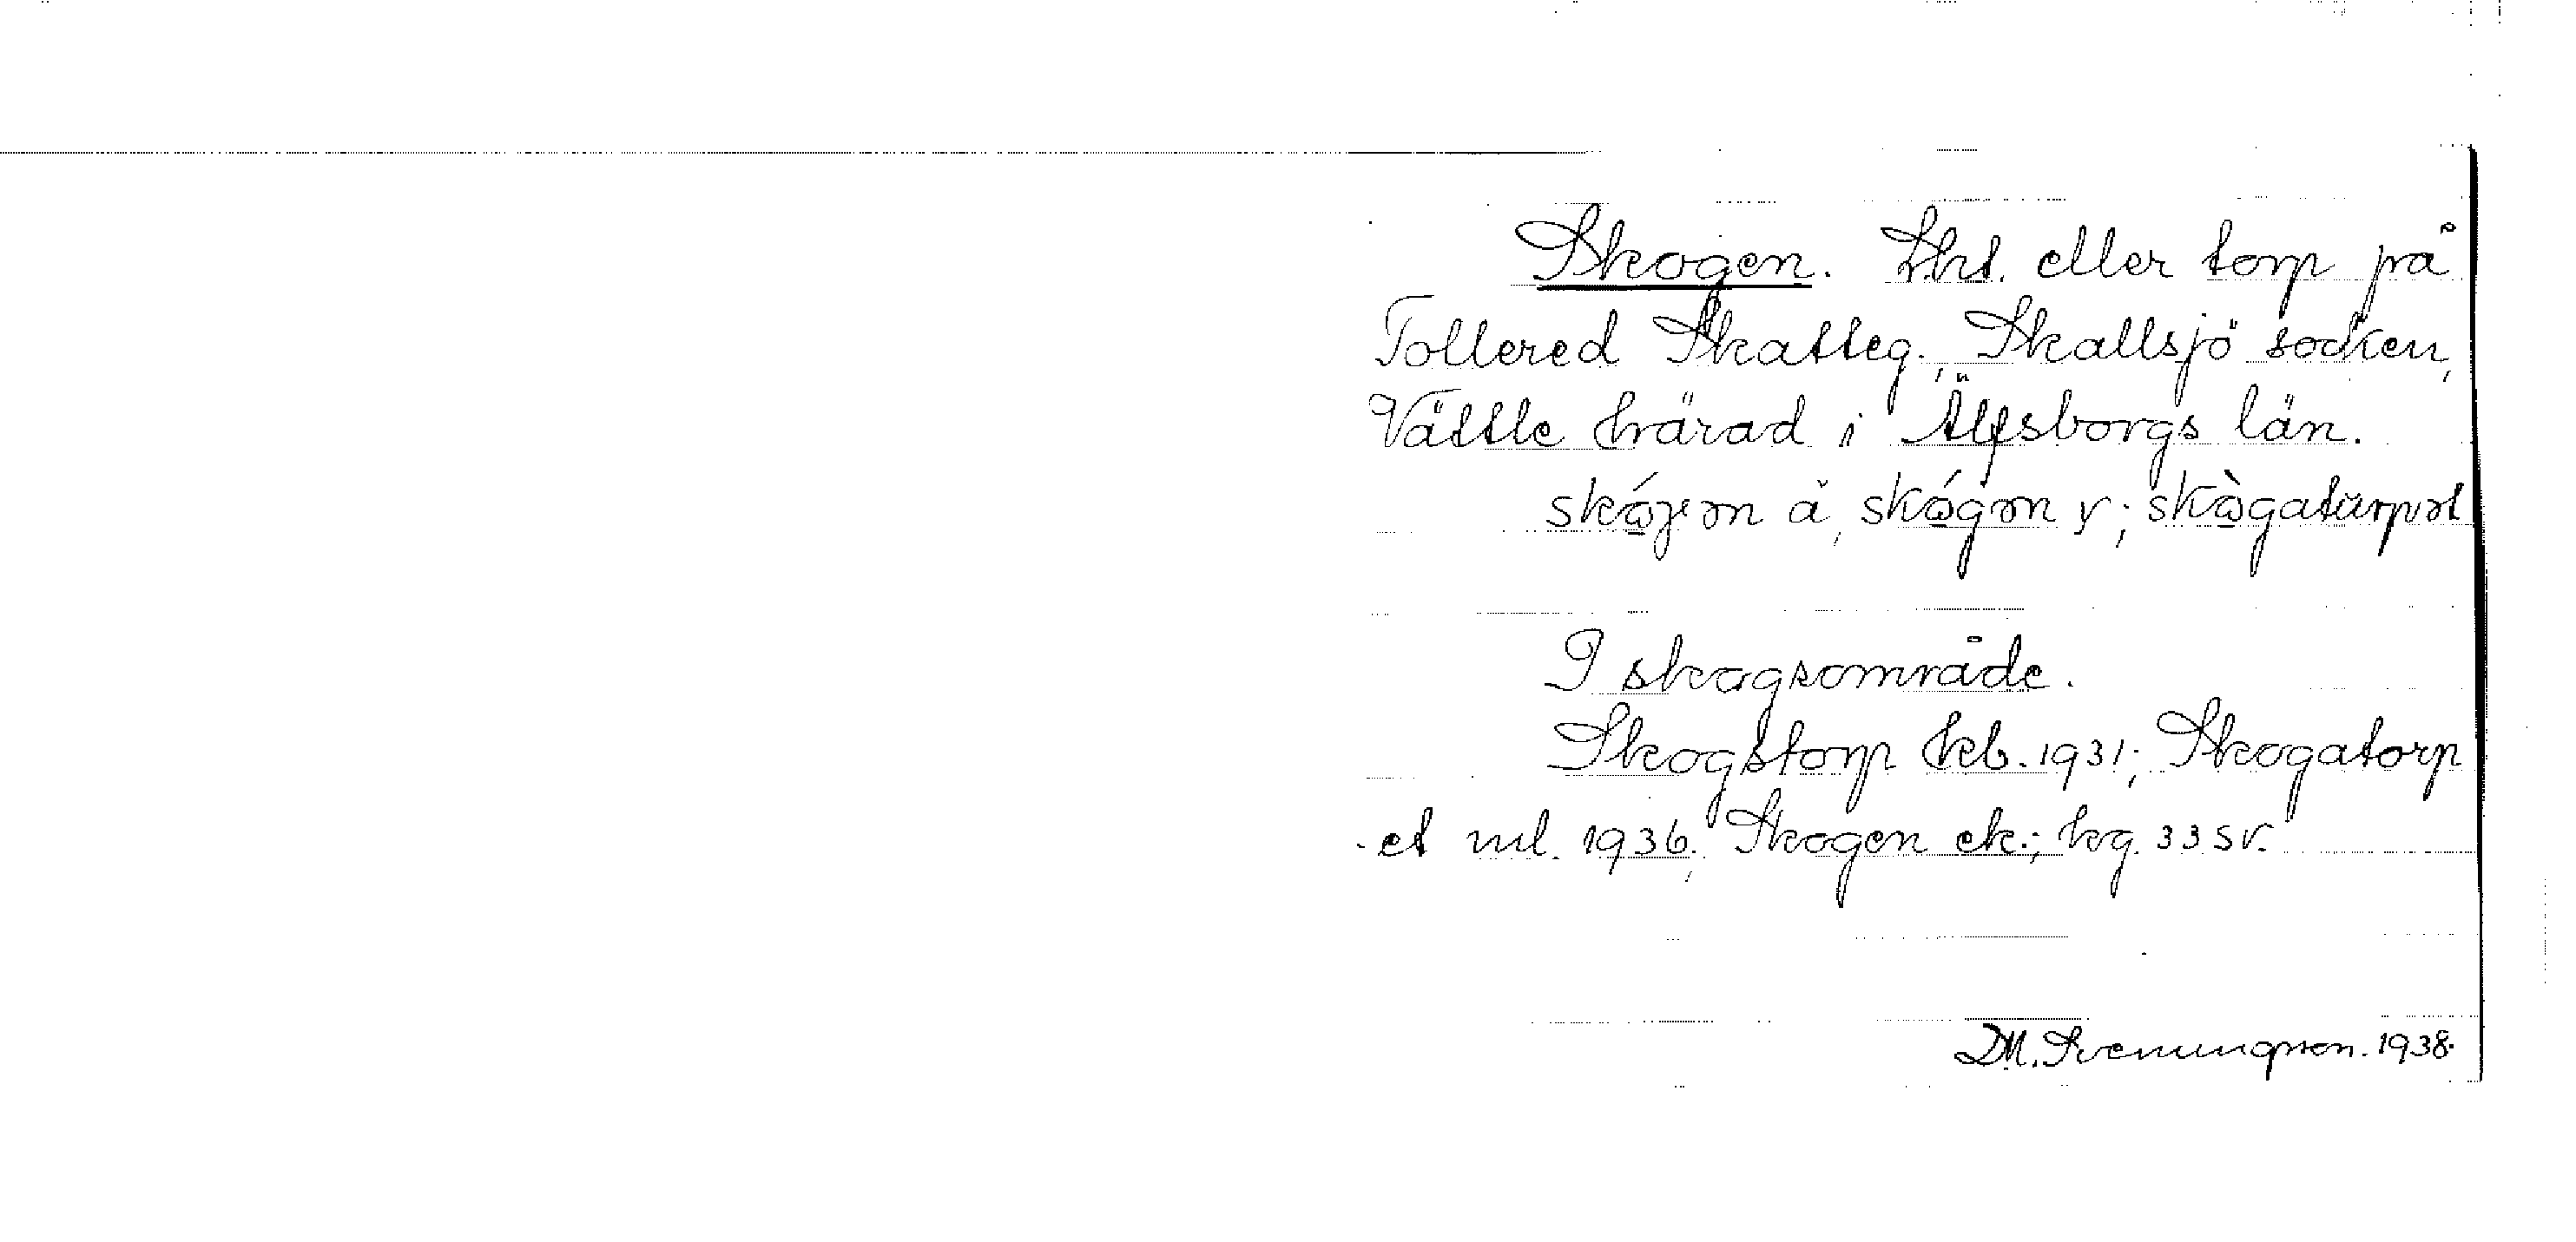 Skogen. Lht. eller torp på
Tollered Skatteg., Skallsjö socken,
Vättle härad i Älfsborgs län.
skǫ́gən ä, skǫ́gən y; skǫ̀gatŭrpət
I skogsområde.
Skogstorp kb. 1931; Skogatorp
-et ml. 1936; Skogen ek.; kg. 33 SV.
DM. Svenungsson. 1938.